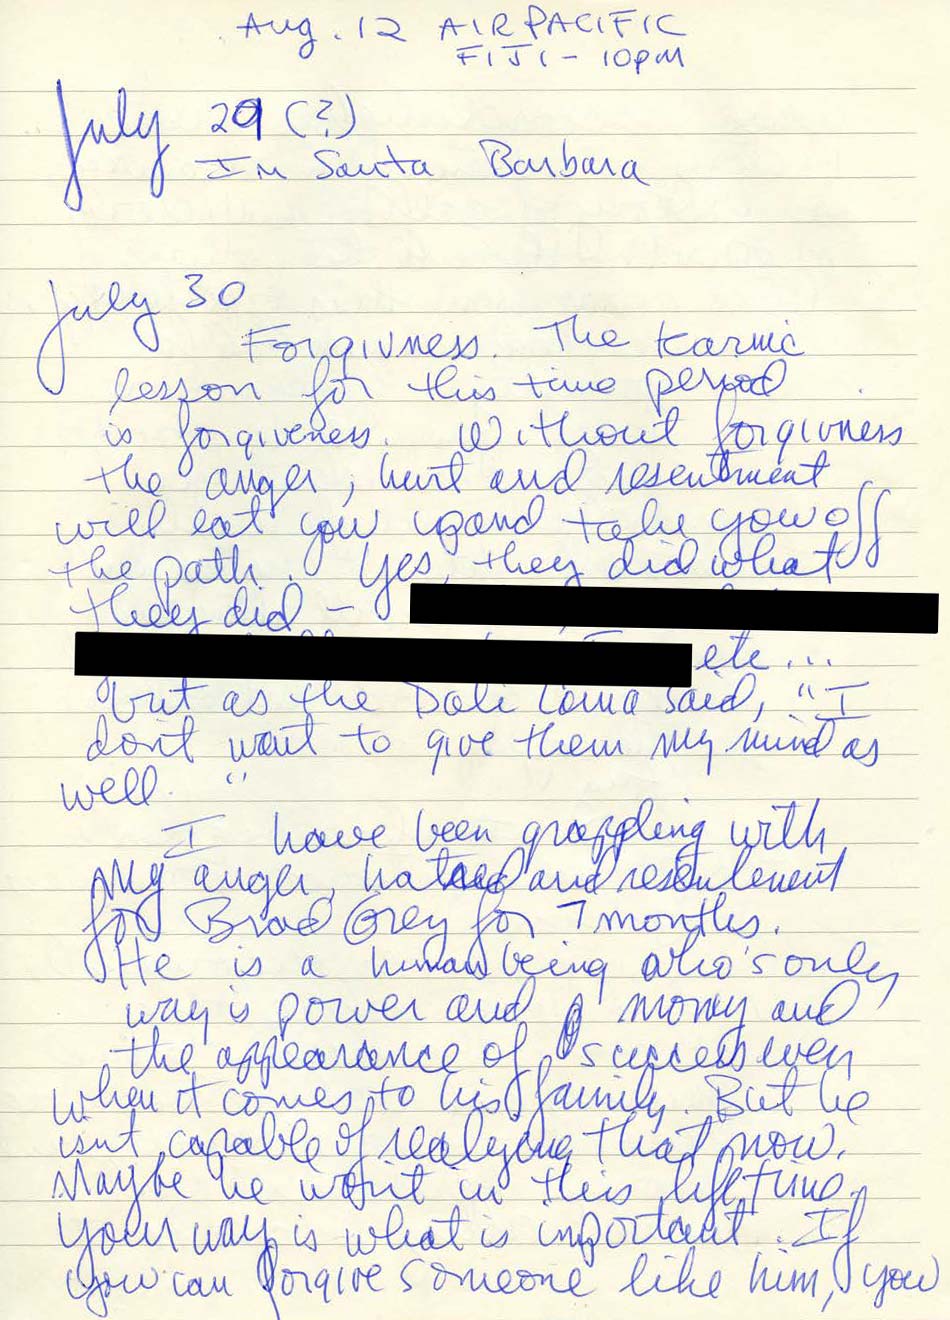 Aug. 12 AIR PACIFIC
FIJI - 10pm
July 29 (?)
In Santa Barbara
July 30
Forgivness. The karmic
lesson for this time period
is forgiveness. Without forgivness
the anger, hurt and resentment
will eat you up and take you off
the path. Yes, they did what
they did -
etc...
but as the Dali Lama said, "I
don't want to give them my mind as
well."
I have been grappling with
my anger, hatred and resentment
for Brad Grey for 7 months.
He is a human being who's only
way is power and money and
the appearance of success even
when it comes to his family. But he
isnt capable of realizing that now.
Maybe he won't in this lifetime.
Your way is what is important. If
you can forgive someone like him, you